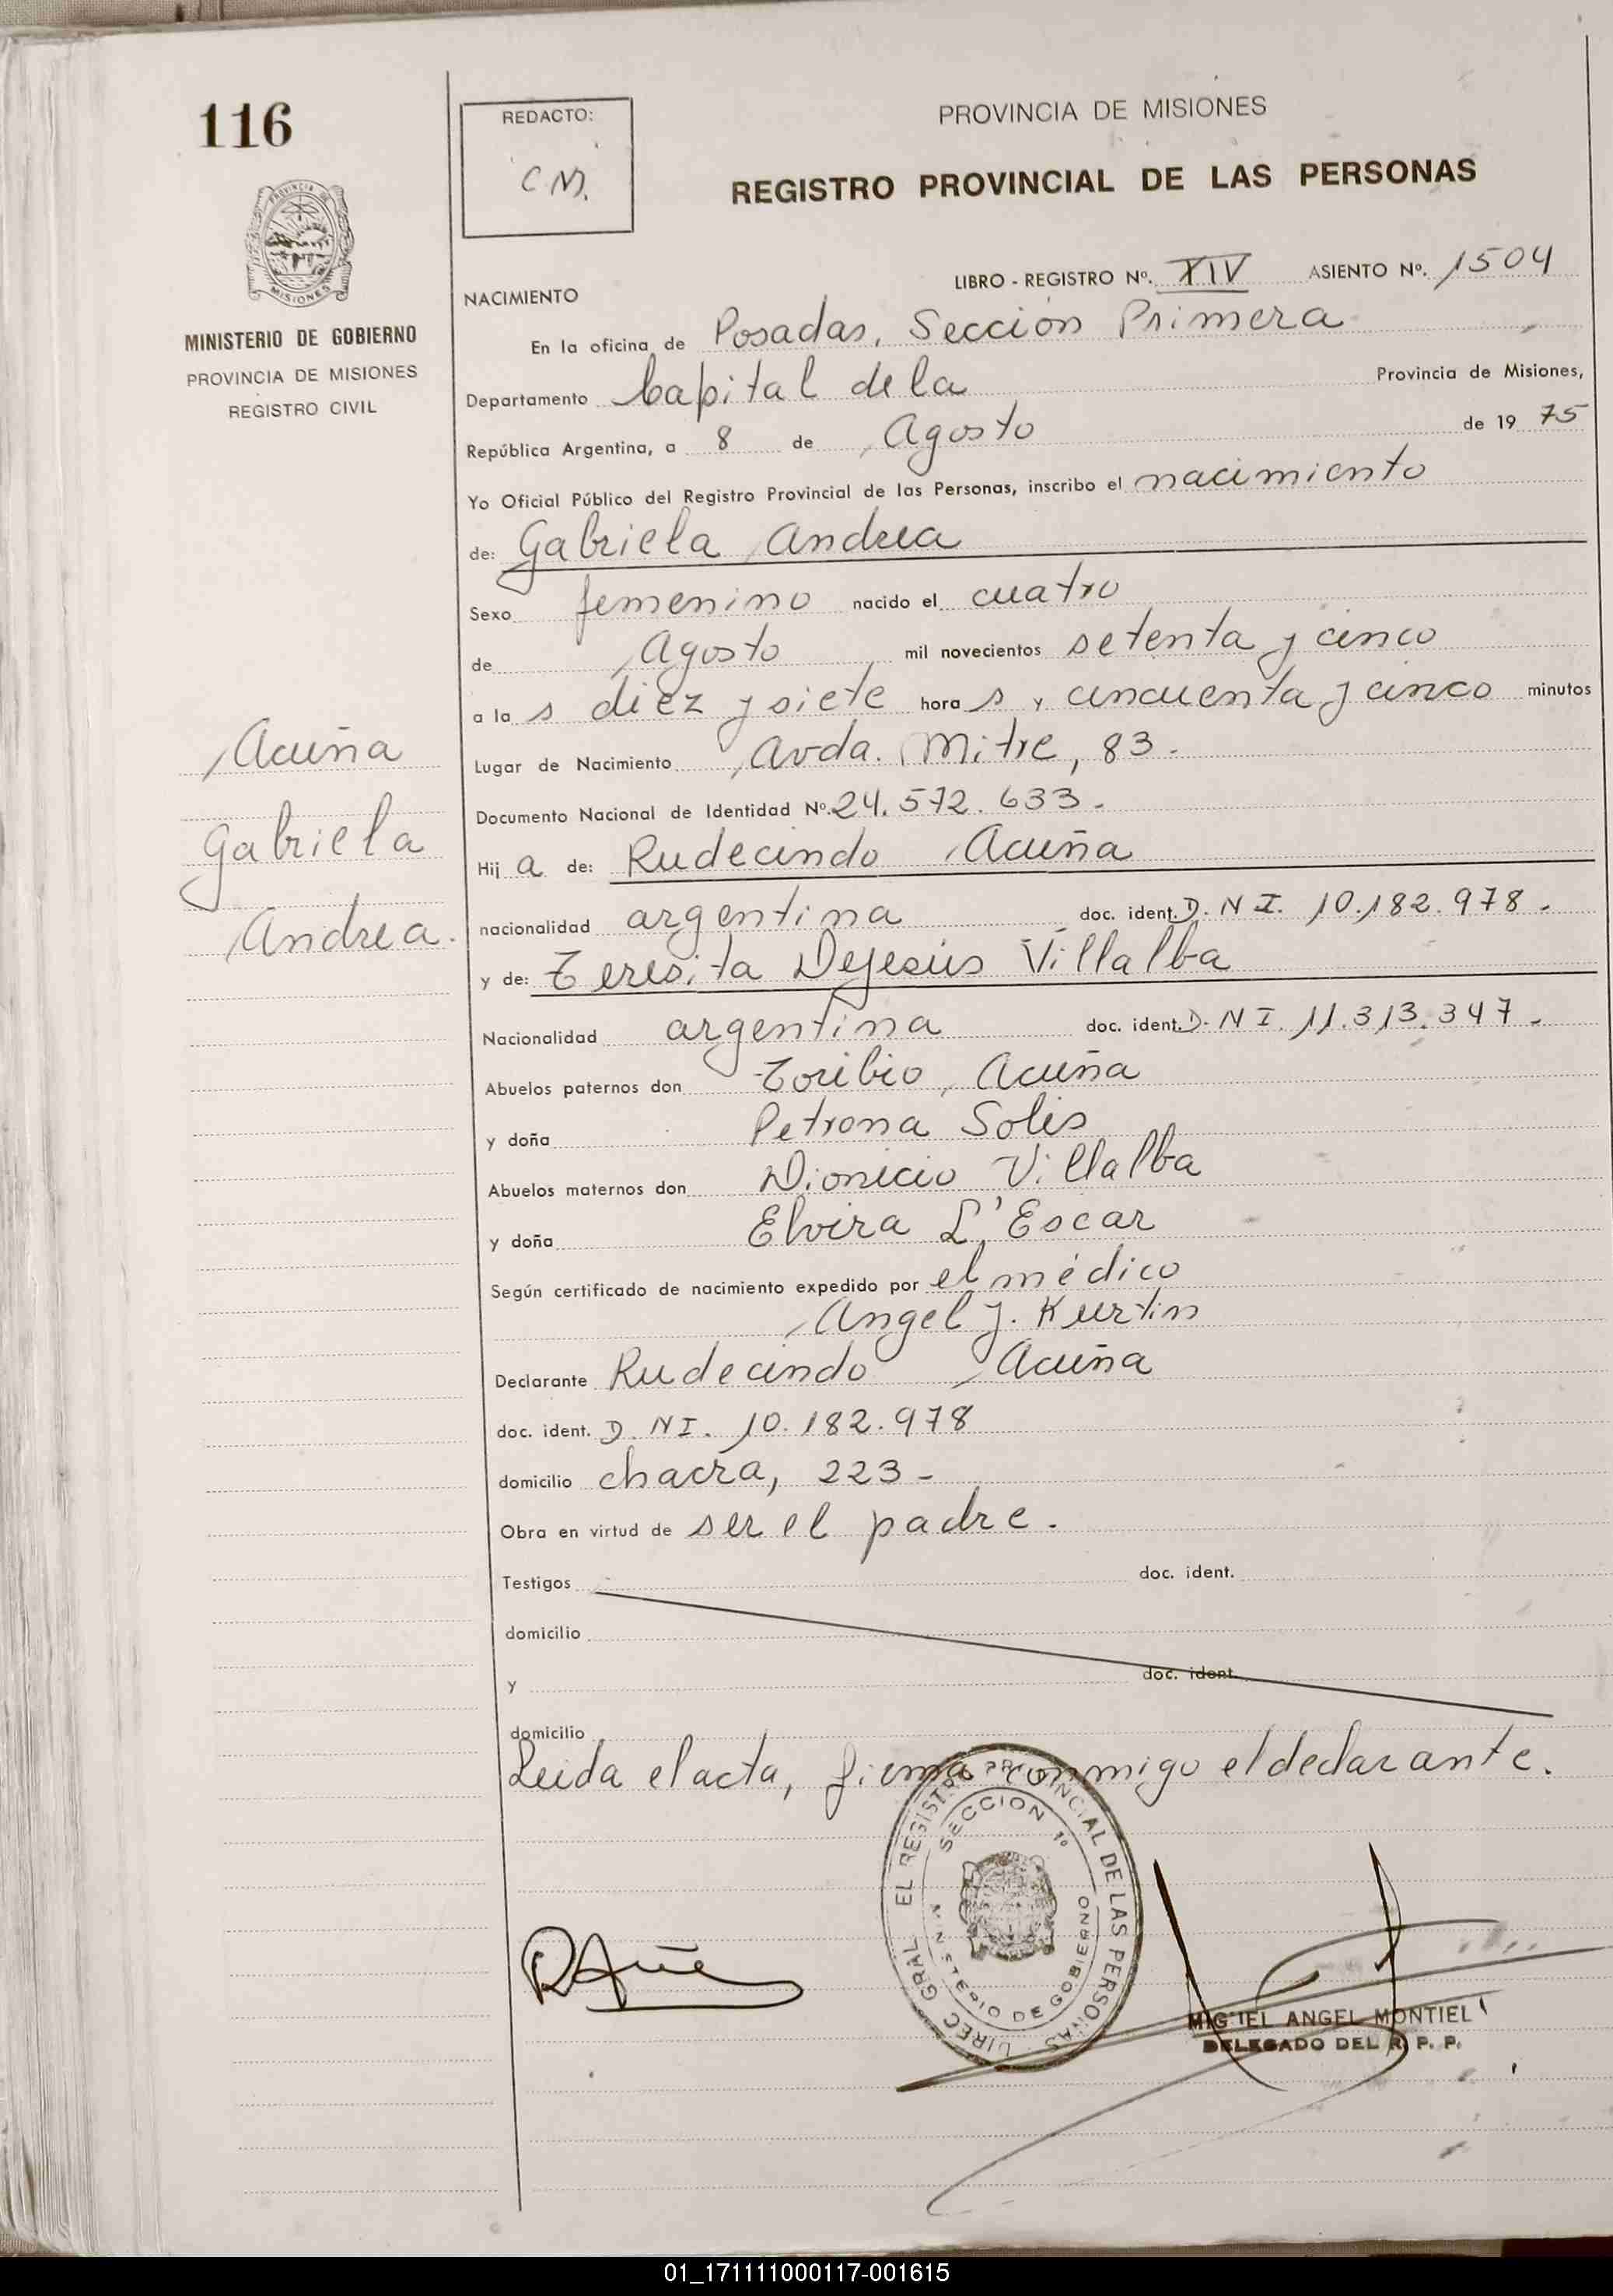 116
REDACTO:
C M.
PROVINCIA DE MISIONES
REGISTRO PROVINCIAL DE LAS PERSONAS
MISIONES
MINISTERIO DE GOBIERNO
PROVINCIA DE MISIONES
REGISTRO CIVIL
LIBRO - REGISTRO Nº. XIV ASIENTO Nº. 1504
NACIMIENTO
En la oficina de Posadas, Sección Primera
Departamento Capital de la Provincia de Misiones,
República Argentina, a 8 de Agosto de 19 75
Yo Oficial Público del Registro Provincial de las Personas, inscribo el nacimiento
de: Gabriela Andrea
Sexo femenino nacido el cuatro
de Agosto mil novecientos setenta y cinco
a la s diez y siete hora s y cincuenta y cinco minutos
Lugar de Nacimiento Avda. Mitre, 83.
Documento Nacional de Identidad Nº. 24.572.633.
Acuña
Gabriela
Andrea.
Hij a de: Rudecindo Acuña
nacionalidad argentina doc. ident. D.N I. 10.182.978.
y de: Teresita Dejesús Villalba
Nacionalidad argentina doc. ident. D.N I. 11.313.347.
Abuelos paternos don Toribio Acuña
y doña Petrona Solis
Abuelos maternos don Dionicio Villalba
y doña Elvira L'Escar
Según certificado de nacimiento expedido por el médico
Angel J. Kurtin
Declarante Rudecindo Acuña
doc. ident. D.N I. 10.182.978
domicilio chacra, 223-
Obra en virtud de ser el padre.
Testigos doc. ident.
domicilio
y doc. ident.
domicilio
Leida el acta, firma conmigo el declarante.
DIREC GRAL EL REGISTRO PROVINCIAL DE LAS PERSONAS
SECCION 1º
MINISTERIO DE GOBIERNO
MIGUEL ANGEL MONTIEL
DELEGADO DEL R. P. P.
01_171111000117-001615